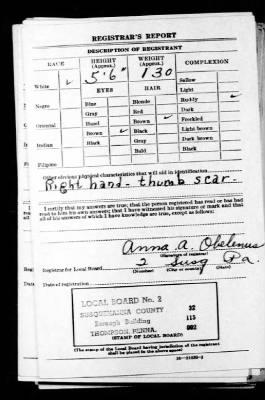 REGISTRAR'S REPORT
DESCRIPTION OF REGISTRANT
RACE
HEIGHT (Approx.)
WEIGHT (Approx.)
COMPLEXION
5'6"
130
White ✓
Sallow
EYES
HAIR
Light
Negro
Blue
Blonde
Ruddy ✓
Gray
Red
Dark
Oriental
Hazel
Brown ✓
Freckled
Brown ✓
Black
Light brown
Indian
Black
Gray
Dark brown
Bald
Black
Filipino
Other obvious physical characteristics that will aid in identification
Right hand - thumb scar -
I certify that my answers are true; that the person registered has read or has had
read to him his own answers; that I have witnessed his signature or mark and that
all of his answers of which I have knowledge are true, except as follows:
Anna A. Obelenus
(Signature of registrar)
Registrar for Local Board 2 Susq Pa.
(Number) (City or county) (State)
Date of registration
LOCAL BOARD No. 2
SUSQUEHANNA COUNTY 32
Borough Building 115
THOMPSON, PENNA. 002
(STAMP OF LOCAL BOARD)
(The stamp of the Local Board having jurisdiction of the registrant
shall be placed in the above space)